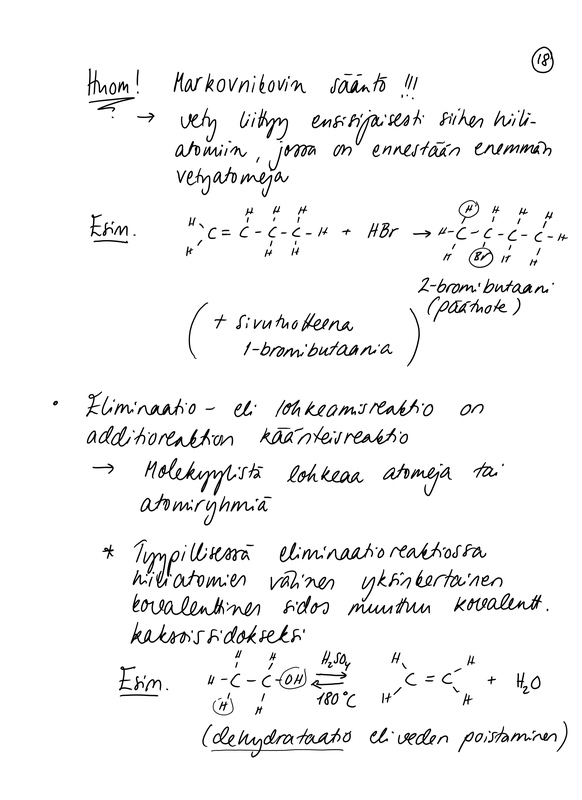 18
Huom! Markovnikovin sääntö !!!
? → vety liittyy ensisijaisesti siihen hiili-
atomiin, jossa on ennestään enemmän
vetyatomeja
Esim. H H C = C - C - C - H + HBr → H - C - C - C - C - H
H H H H H H H H H H Br H H
2-bromibutaani
(päätuote)
( + sivutuotteena
1-bromibutaania )
• Eliminaatio- eli lohkeamisreaktio on
additioreaktion käänteisreaktio
→ Molekyylistä lohkeaa atomeja tai
atomiryhmiä
* Tyypillisessä eliminaatioreaktiossa
hiiliatomien välinen yksinkertainen
kovalenttinen sidos muuttuu kovalentt.
kaksoissidokseksi
Esim. H - C - C - OH ⇌ H₂SO₄ 180°C C = C + H₂O
H H H H H H H H
(dehydrataatio eli veden poistaminen)